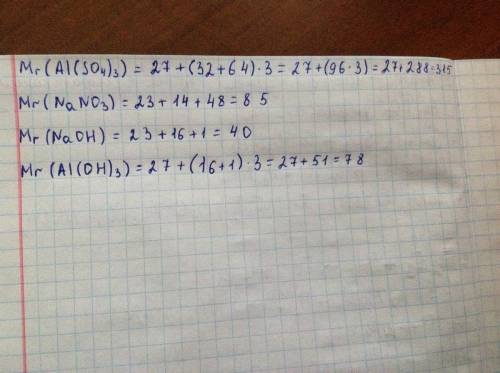 Mr(Al(SO4)3) = 27+(32+64)·3 = 27+(96·3) = 27+288=315
Mr(NaNO3) = 23+14+48=85
Mr(NaOH) = 23+16+1=40
Mr(Al(OH)3) = 27+(16+1)·3=27+51=78